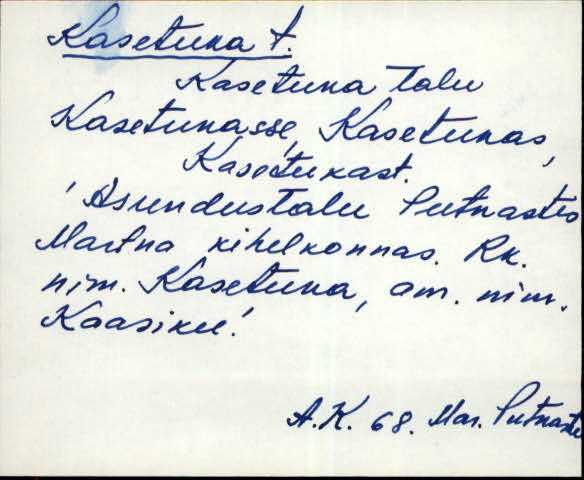 Kasetuka t.
Kasetuka talu
Kasetukasse, Kasetukas,
Kasetukast.
'Asundustalu Putkastes
Martna kihelkonnas. Rk.
nim. Kasetuka, am. nim.
Kaasiku.'
A.K. 68. Mar. Putkaste